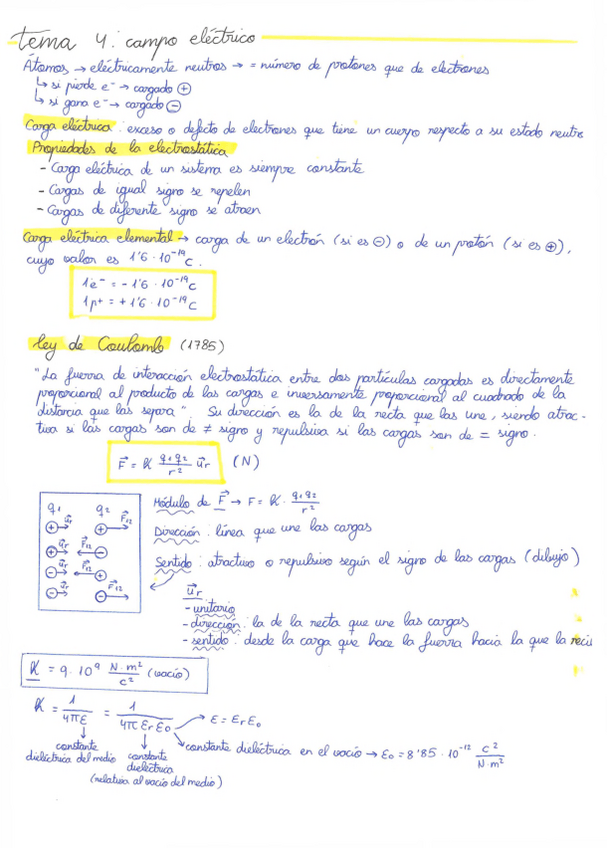 tema 4: campo eléctrico
Átomos → eléctricamente neutros → = número de protones que de electrones
↳ si pierde e⁻ → cargado ⊕
↳ si gana e⁻ → cargado ⊖
Carga eléctrica: exceso o defecto de electrones que tiene un cuerpo respecto a su estado neutro
Propiedades de la electrostática
- Carga eléctrica de un sistema es siempre constante
- Cargas de igual signo se repelen
- Cargas de diferente signo se atraen
Carga eléctrica elemental → carga de un electrón (si es ⊖) o de un protón (si es ⊕),
cuyo valor es 1'6 · 10⁻¹⁹ C.
1e⁻ = - 1'6 · 10⁻¹⁹ C
1p⁺ = + 1'6 · 10⁻¹⁹ C
ley de Coulomb (1785)
"La fuerza de interacción electrostática entre dos partículas cargadas es directamente
proporcional al producto de las cargas e inversamente proporcional al cuadrado de la
distancia que las separa". Su dirección es la de la recta que las une, siendo atrac-
tiva si las cargas son de ≠ signo y repulsiva si las cargas son de = signo.
F⃗ = K q₁q₂/r² u⃗r (N)
q₁ q₂
⊕→ u⃗r ⊕→ F⃗₁₂
⊕→ u⃗r F⃗₁₂ ←⊖
⊖→ u⃗r F⃗₁₂ ←⊕
⊖→ u⃗r ⊖→ F⃗₁₂
Módulo de F⃗ → F = K · q₁q₂/r²
Dirección: línea que une las cargas
Sentido: atractivo o repulsivo según el signo de las cargas (dibujo)
u⃗r
- unitario
- dirección: la de la recta que une las cargas
- sentido: desde la carga que hace la fuerza hacia la que la reci
K = 9 · 10⁹ N·m²/C² (vacío)
K = 1/4πε = 1/4πεrε₀ → ε = εrε₀
constante dieléctrica en el vacío → ε₀ = 8'85 · 10⁻¹² C²/N·m²
constante
dieléctrica del medio
constante
dieléctrica
(relativa al vacío del medio)